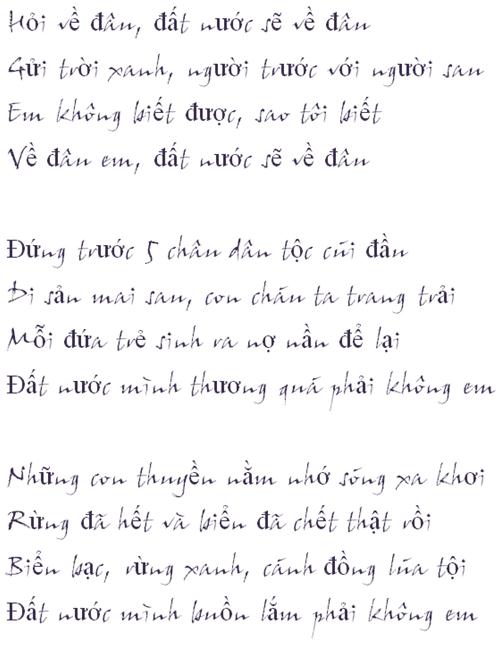 Hỏi về đâu, đất nước sẽ về đâu
Gửi trời xanh, người trước với người sau
Em không biết được, sao tôi biết
Về đâu em, đất nước sẽ về đâu
Đứng trước 5 châu dân tộc cúi đầu
Di sản mai sau, con cháu ta trang trải
Mỗi đứa trẻ sinh ra nợ nần để lại
Đất nước mình thương quá phải không em
Những con thuyền nằm nhớ sóng xa khơi
Rừng đã hết và biển đã chết thật rồi
Biển bạc, rừng xanh, cánh đồng lúa tội
Đất nước mình buồn lắm phải không em